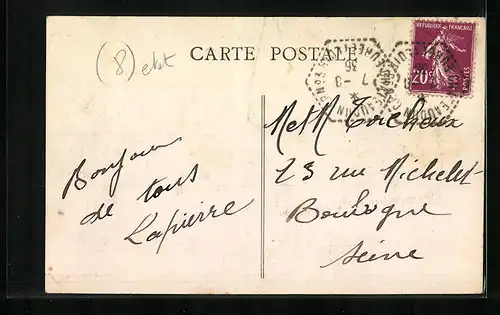 (8) ebt
CARTE POSTALE
REPUBLIQUE FRANCAISE
20c
POSTES
7 -9
36
Bonjour
de tous
Lapierre
M et M
23 rue Michelet
Boulogne
Seine